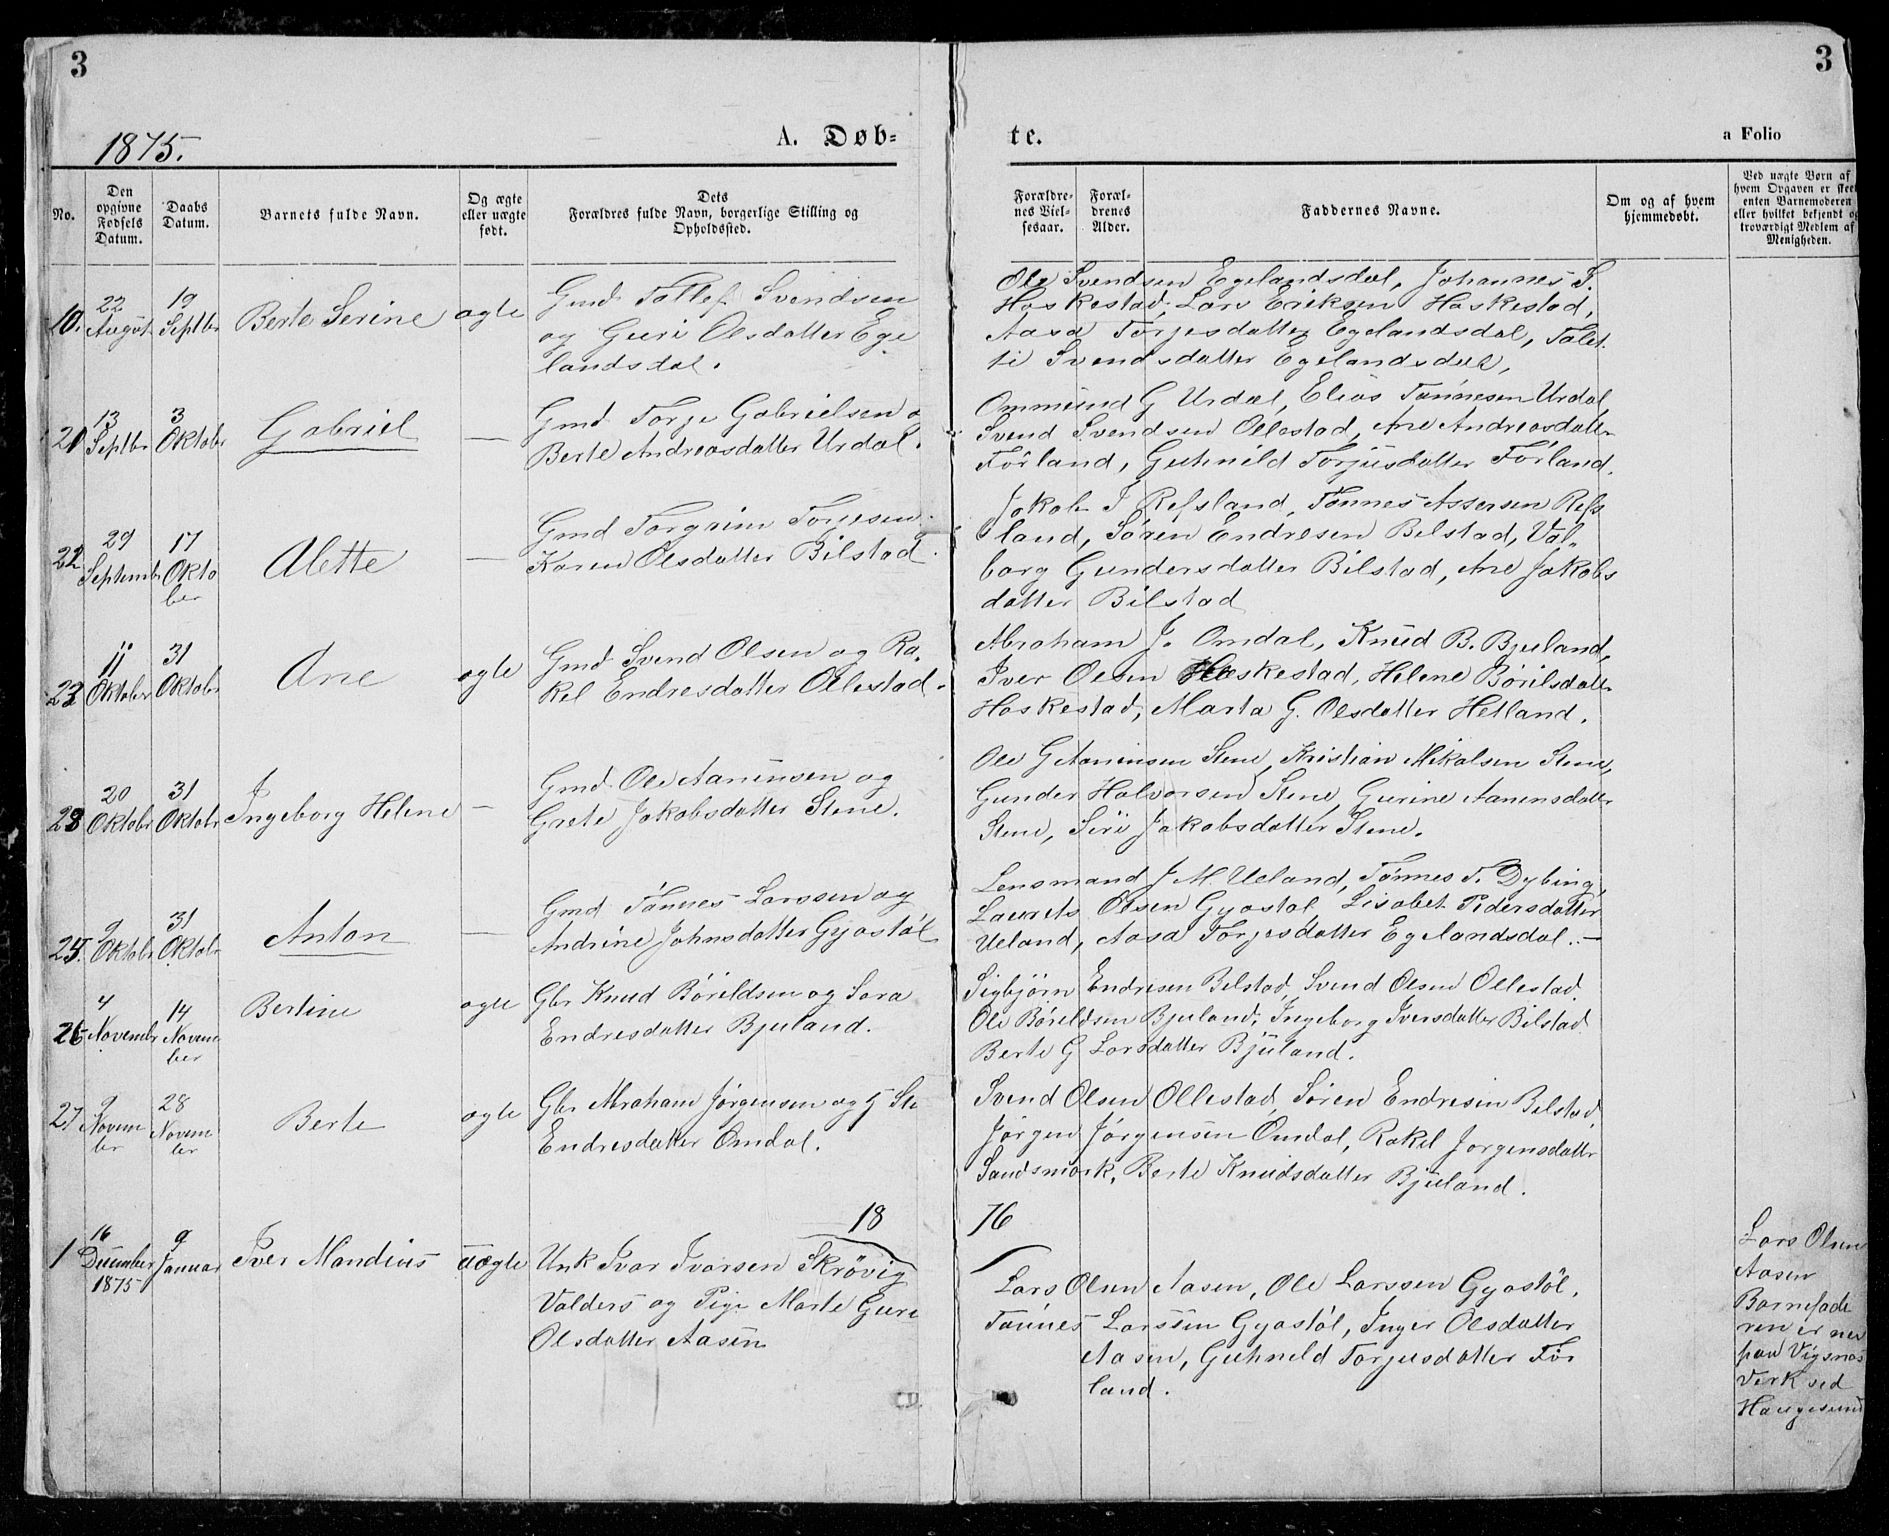 3
3
1875.
A. Døb-
te.
a Folio
No.
Den opgivne Fødsels Datum.
Daabs Datum.
Barnets fulde Navn.
Og ægte eller uægte født.
Dets Forældres fulde Navn, borgerlige Stilling og Opholdssted.
Forældrenes Vielsesaar.
Forældrenes Alder.
Faddernes Navne.
Om og af hvem hjemmedøbt.
Ved uægte Børn af hvem Opgaven er skeet enten Barnemoderen eller hvilket bekjendt og troværdigt Medlem af Menigheden.
22 August
19 Septbr
Berte Serine
ægte
Gmd. Tollef Svendsen
og Guri Olsdatter Ege
landsdal.
Ole Svendsen Egelandsdal, Johannes S.
Hoskestad, Lars Eriksen Hoskestad,
Aasa Torjesdatter Egelandsdal, Talet
te Svendsdatter Egelandsdal,
13 Septbr
3 Oktobr
Gabriel
—
Gmd Torje Gabrielsen o
Berte Andreasdatter Urdal.
Ommund G Urdal, Elias Tønnesen Urdal,
Svend Svendsen Ollestad, Ane Andreasdatter
Førland, Guhnild Torjusdatter Førland.
22
29 September
17 Oktober
Alette
—
Gmd Torgrim Torjesen
Karen Olsdatter Bilstad.
Jakob J Refsland, Tønnes Assersen Refs
land, Søren Endresen Bilstad, Val-
borg Gundersdatter Bilstad, Ane Jakobs
datter Bilstad
23
11 Oktobr
31 Oktobr
Ane
ægte
Gmd. Svend Olsen og Ra-
kel Endresdatter Ollestad.
Abraham J. Omdal, Knud B. Bjuland,
Iver Olsen Hoskestad, Helene Børilsdatter
Hoskestad, Marta G. Olsdatter Hetland.
20 Oktobr
31 Oktobr
Ingeborg Helene
—
Gmd. Ole Aanensen og
Grete Jakobsdatter Stene.
Ole G Aanensen Stene, Kristian Mikalsen Stene,
Gunder Halvorsen Stene, Gurine Aanensdatter
Stene, Siri Jakobsdatter Stene.
25.
9 Oktobr
31 Oktobr
Anton
—
Gmd Tønnes Larssen og
Andrine Johnsdatter Gyastøl
Lensmand J M Ueland, Tønnes T. Dybing,
Laurets Olsen Gyastøl Lisabet Pedersdatter
Ueland, Aasa Torjesdatter Egelandsdal.—
26
4 Novembr
14 November
Bertine
ægte
Gbr Knud Børildsen og Sara
Endresdatter Bjuland.
Sigbjørn Endresen Bilstad, Svend Olsen Ollestad.
Ole Børildsen Bjuland, Ingeborg Iversdatter Bilstad
Berte G Larsdatter Bjuland.
27
9 November
28 November
Berte
ægte
Gbr Abraham Jørgensen og G
Endresdatter Omdal.
Svend Olsen Ollestad, Søren Endresen Bilstad,
Jørgen Jørgensen Omdal, Rakel Jørgensdatter
Sandsmark, Berte Knudsdatter Bjuland.
18
76
1
16 December 1875
9 Januar
Iver Mandius
uægte
Unk Ivar Ivarsen Skrøvig
Valders og Pige Marte Guri
Olsdatter Aasen
Lars Olsen Aasen, Ole Larssen Gyastøl,
Tønnes Larssen Gyastøl, Inger Olsdatter
Aasen, Guhnild Torjusdatter Før
land.
Lars Olsen
Aasen
Barnefade
ren er nu
paa Vigsnes
Verk ved
Haugesund